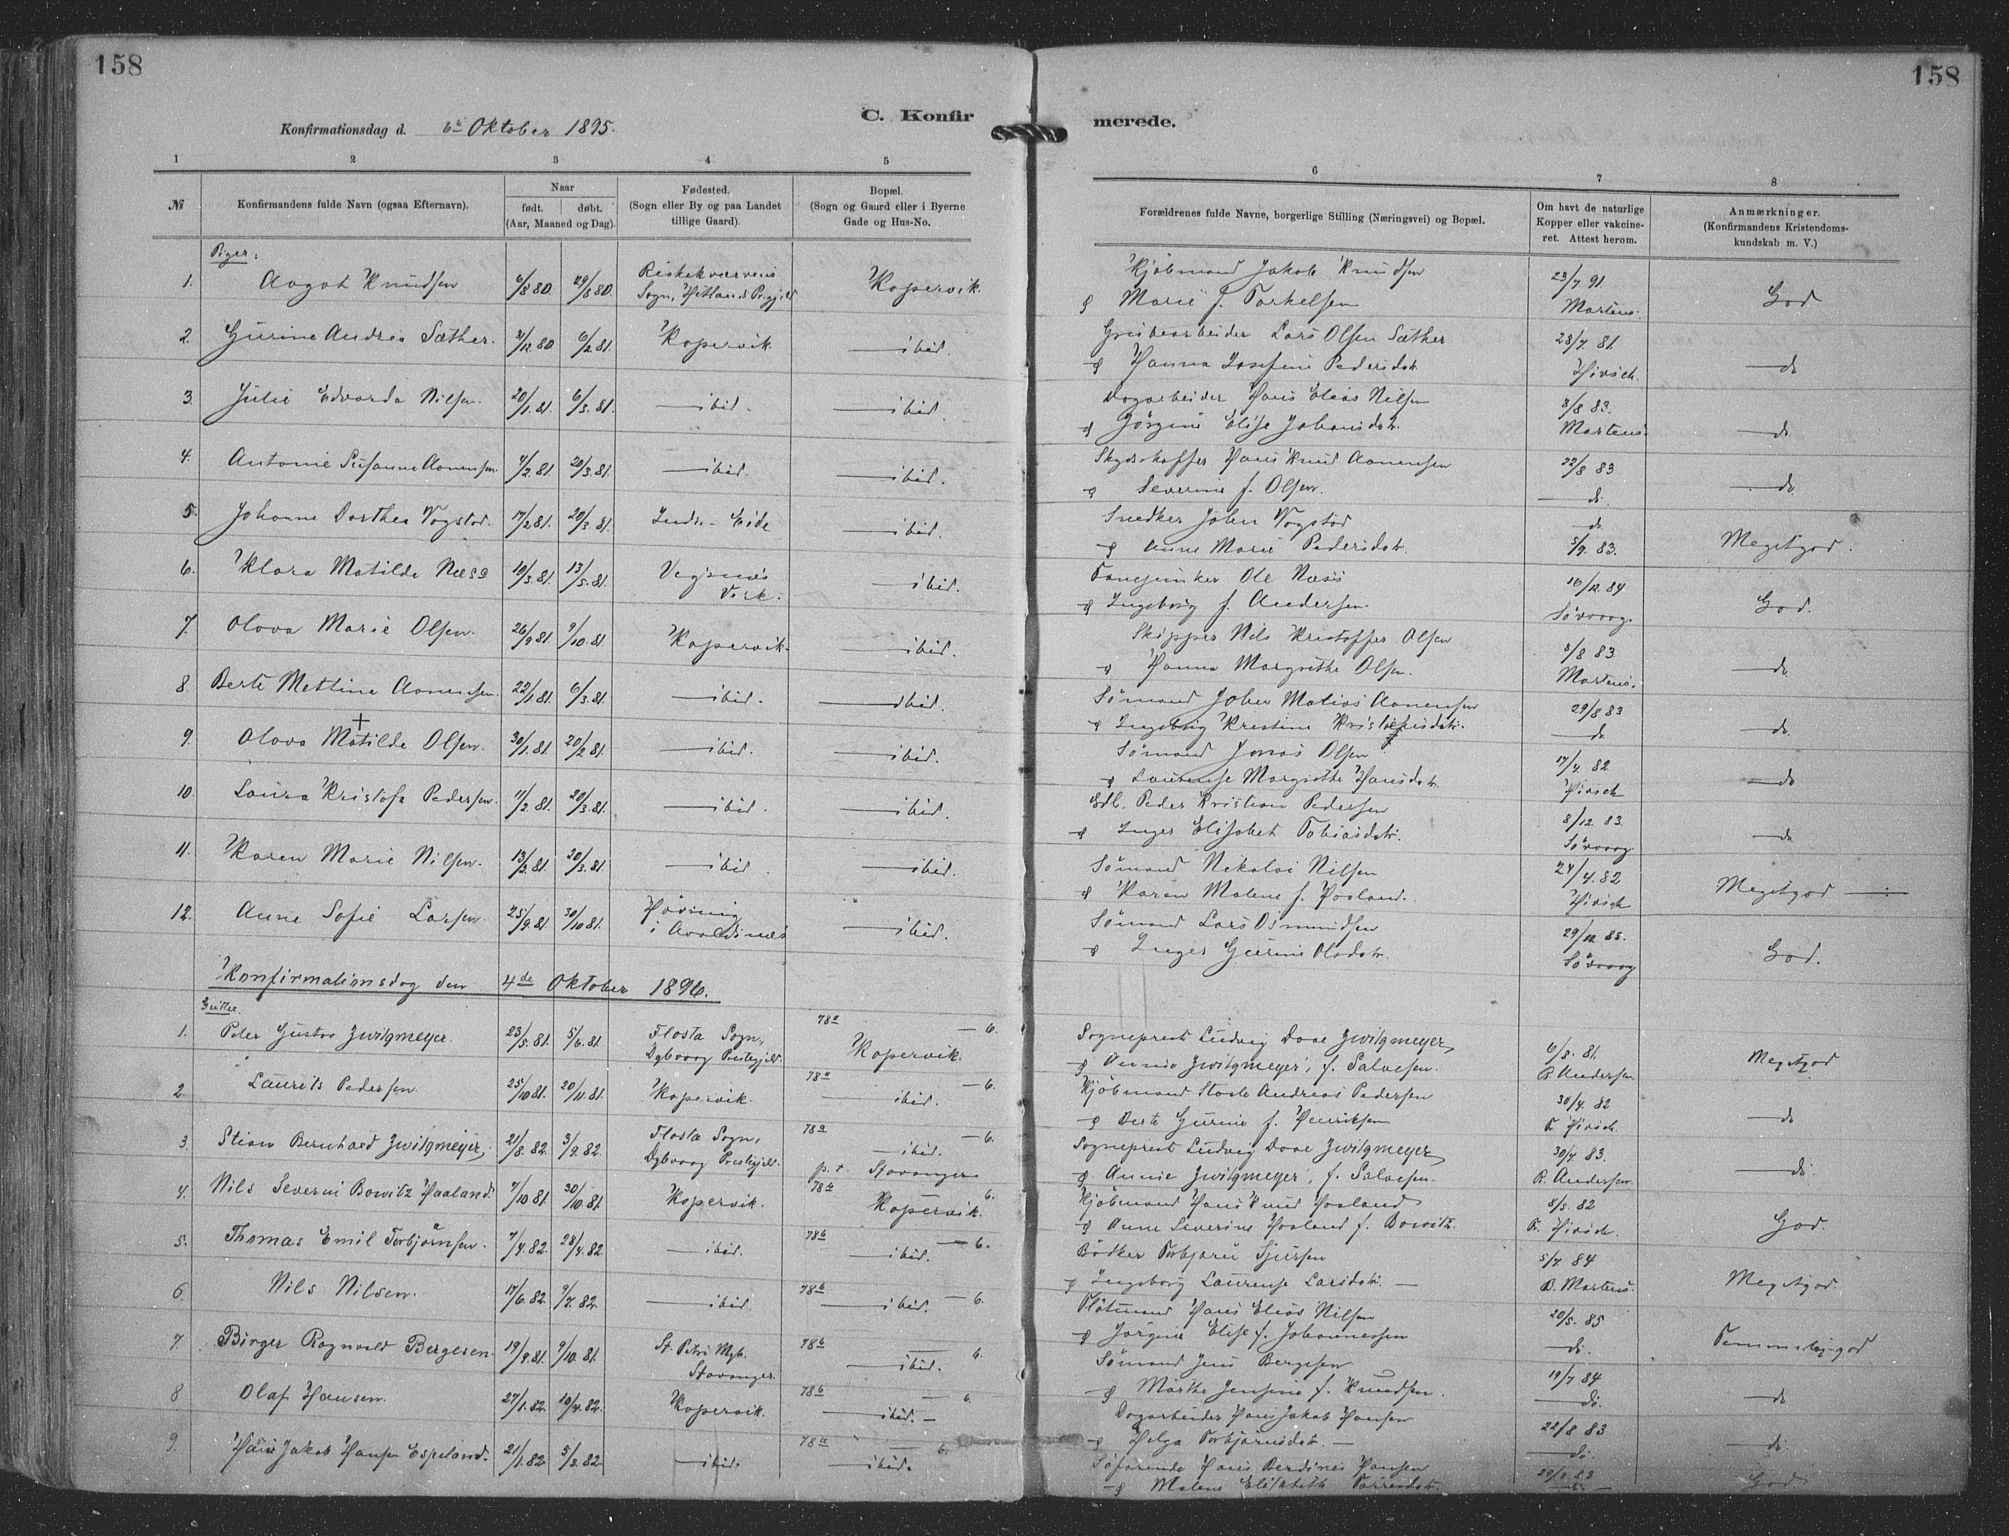 158
158
Konfirmationsdag d. 6te Oktober 1895.
C. Konfirmerede.
1 2 3 4 5 6 7 8
№
Konfirmandens fulde Navn (ogsaa Efternavn).
Naar
født. døbt.
(Aar, Maaned og Dag).
Fødested.
(Sogn eller By og paa Landet
tillige Gaard).
Bopæl.
(Sogn og Gaard eller i Byerne
Gade og Hus-No.
Forældrenes fulde Navne, borgerlige Stilling (Næringsvei) og Bopæl.
Om havt de naturlige
Kopper eller vakcine-
ret. Attest herom.
Anmærkninger.
(Konfirmandens Kristendoms-
kundskab m. V.)
Piger:
1. Aagot Knudsen 6/8 80. 29/8 80. Kopervik. Kjøbmand Jakob Knudsen 23/7 91 God
Sogn, Hetlands Prgjld. & Marie f. Torkelsen Martens.
2. Gurine Andrea Sæther. 3/12 80 6/2 81. Kopervik ibid. Grubearbeider Lars Olsen Sæther 28/7 81. do
& Hanna Josefine Pedersdtr. Hirsch.
3. Julie Edvarda Nilsen. 20/1 81. 6/3 81. ibid. ibid. Dagarbeider Hans Elias Nilsen 8/8 83. do.
& Jørgine Elise Johansdtr. Martens.
4. Antonie Susanne Aanensen 4/2 81 20/3 81. ibid. ibid. Skydsskaffer Hans Knud Aanensen 22/8 83 do.
& Severine f. Olsen. do.
5. Johanne Dorthea Vagstad. 17/2 81. 20/3 81. Indr. Eide ibid. Snedker Johan Vagstad do Megetgod.
& Anne Marie Pedersdtr. 5/9 83.
6. Klara Matilde Næss 19/3 81. 13/5 81. Vigsnæs ibid. Fanejunker Ole Næss 16/12 84 God.
Verk. & Ingeborg f. Andersen. Sørvaag.
7. Olava Marie Olsen. 26/9 81 9/10 81. Kopervik. ibid. Skipper Nils Kristoffer Olsen 8/8 83 do.
& Hanna Margrethe Olsen. Martens.
8. Berte Mettine Aanensen. 22/1 81. 6/3 81. ibid. ibid. Sømand Johan Matias Aanensen 29/8 83 do.
& Ingeborg Kristine Kristofersdtr. do
9. Olava Matilde Olsen. 30/1 81. 20/2 81. ibid. ibid. Sømand Jonas Olsen 17/4 82 do
& Laurense Margrethe Hansdtr. Hirsch
10. Laura Kristofa Pedersen. 1/2 81. 20/3 81. ibid. ibid. Gdb. Peder Kristian Pedersen 8/12 83. do
& Inger Elisabet Tobiasdtr. Sørvaag
11. Karen Marie Nilsen. 13/2 81. 20/3 81. ibid. ibid. Sømand Nikolai Nilsen 24/4 82 Megetgod
& Karen Malene f. Haaland. Hirsch
12. Anne Sofie Larsen. 25/9 81 30/10 81. Høvring ibid. Sømand Lars Osmundsen 29/12 85. God.
i Avaldsnæs & Inger Gurine Olsdtr. Sørvaag
Konfirmationsdag den 4de Oktober 1896.
Gutter.
1. Peter Gustav Zwilgmeyer. 23/5 81. 5/6 81. Flosta Sogn, 78a 6. Sogneprest Ludvig Daae Zwilgmeyer, 6/8 81. Megetgod
Dybvaag Prestegjeld. Kopervik. & Annie Zwilgmeyer, f. Salvesen. R. Andersen
2. Laurits Pedersen 25/10 81. 20/11 81. Kopervik. 78a 6. ibid. Kjøbmand Andreas Pedersen 30/4 82 do
& Berte Gurine f. Henriksen F. Hirsch.
3. Stian Bernhard Zwilgmeyer, 21/8 82. 3/9 82. Flosta Sogn, 78a 6. ibid. Sogneprest Ludvig Daae Zwilgmeyer 30/7 83. do.
Dybvaag Prestegjeld. p. t. Stavanger & Annie Zwilgmeyer, f. Salvesen. R. Andersen
4. Nils Severin Bowitz Haaland. 7/10 81. 30/10 81. Kopervik. 78a 6. Kopervik. Kjøbmand Hans Knud Haaland 8/5 82 God.
& Anne Severine Haaland f. Bowitz. F. Hirsch.
5. Thomas Emil Torbjørnsen. 7/4 82. 28/4 82 ibid. 78b 6. ibid. Bødker Torbjørn Sjursen 5/7 84 Megetgod.
& Ingeborg Laurense Larsdtr. B. Martens.
6. Nils Nilsen. 17/6 82. 9/7 82. ibid. 78b 6. ibid. Hans Elias Nilsen 20/5 85
& Jørgine Elise f. Johannessen do.
7. Birger Ragnvald Bergesen. 19/9 81. 9/10 81. St. Petri Mgh. 78b 6. ibid. Sømand Jens Bergesen 19/7 84 Temmelig god
Stavanger & Marthe Jensine f. Knudsen. do.
8 Olaf Hansen. 27/1 82. 10/4 82. Kopervik. 78b 6 ibid. Dagarbeider Hans Jakob Hansen 22/8 83 do
& Helga Torbjørnsdtr. do.
9. Hans Jakob Hansen Espeland. 21/1 82. 5/3 82 ibid. 78a 6. ibid. Søfarende Hans Berdines Hansen 29/8 83 do.
& Malene Elisabeth do. God